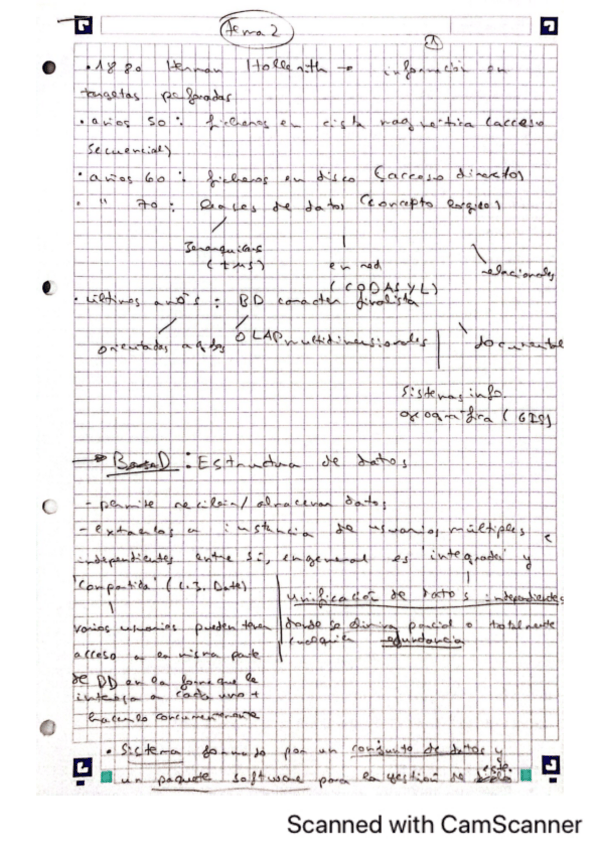 Tema 2
1
· 1880 Herman Hollerith → información en
targetas perforadas
· años 50 : ficheros en cinta magnética (acceso
secuencial)
· años 60 : ficheros en disco (acceso directo)
· " 70 : Bases de datos (concepto lógico)
Jerarquicas
(IMS)
en red
(CODASYL)
relacionales
· últimos años : BD caracter finalista
orientadas a objetos
OLAP multidimensionales
documental
Sistemas info.
geográfica (GIS)
→ BaseD : Estructura de datos
- permite recibir/almacenar datos
- extraerlos a instancia de usuarios múltiples e
independientes entre sí, en general es 'integrada' y
'compartida' (C.J. Date)
unificación de datos independientes
donde se elimina parcial o totalmente
cualquier redundancia
varios usuarios pueden tener
acceso a la misma parte
de BD en la forma que le
interesa a cada uno +
hacerlo concurrentemente
· Sistema formado por un conjunto de datos y
un paquete software para la gestión de este
Scanned with CamScanner